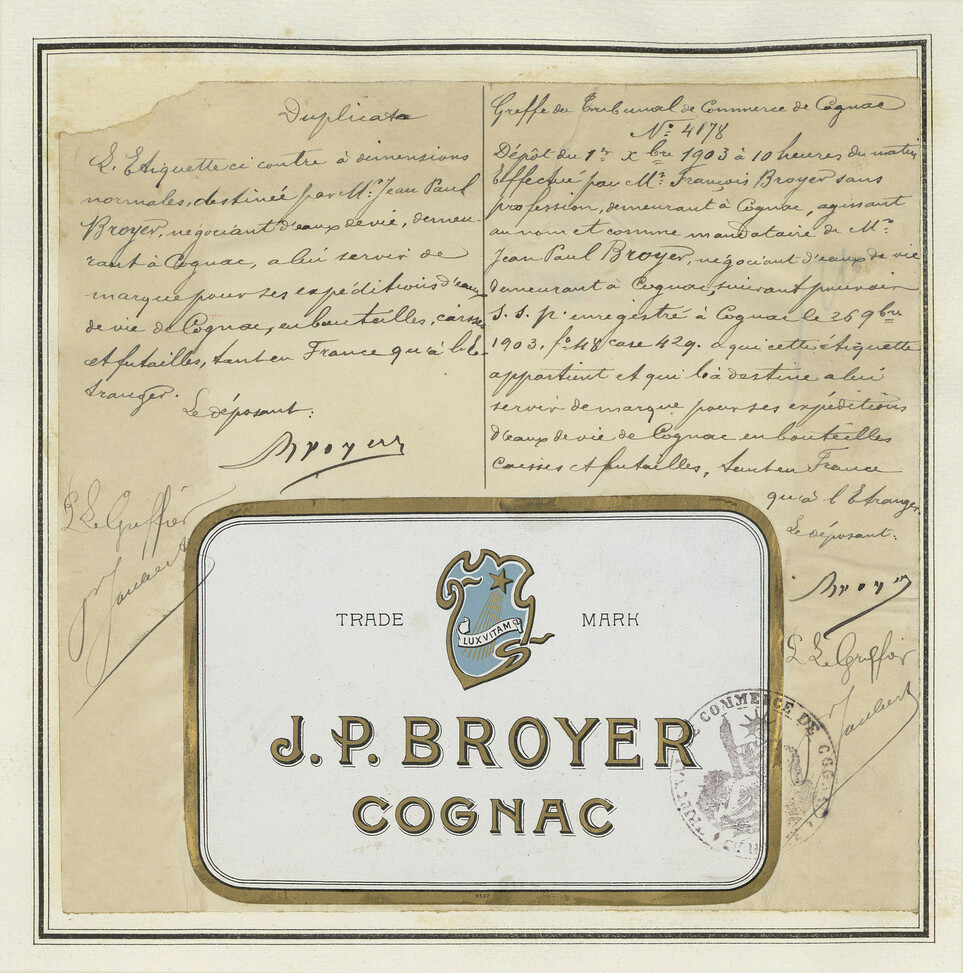 Duplicata
L'Etiquette ci contre à dimensions
normales, destinée par Mr. Jean Paul
Broyer, négociant d'eaux de vie, demeu-
rant à Cognac, a lui servir de
marque pour ses expéditions d'eaux
de vie de Cognac, en bouteilles, caisses
et futailles, tant en France qu'à l'E-
tranger.
Le déposant:
Broyer
P. Le Greffier
Greffe du Tribunal de Commerce de Cognac
No. 4178
Dépôt du 1er xbre 1903 à 10 heures du matin
Effectué par Mr. François Broyer sans
profession, demeurant à Cognac, agissant
au nom et comme mandataire de Mr.
Jean Paul Broyer, négociant d'eaux de vie
demeurant à Cognac, suivant pouvoir
s. s. p. enregistré à Cognac le 26 9bre
1903, fo. 48 case 429. a qui cette étiquette
appartient et qui la destine a lui
servir de marque pour ses expéditions
d'eaux de vie de Cognac en bouteilles
caisses et futailles, tant en France
qu'à l'Etranger.
Le déposant:
Broyer
P. Le Greffier
TRADE MARK
LUX VITAM
J.P. BROYER
COGNAC
COMMERCE DE COGNAC